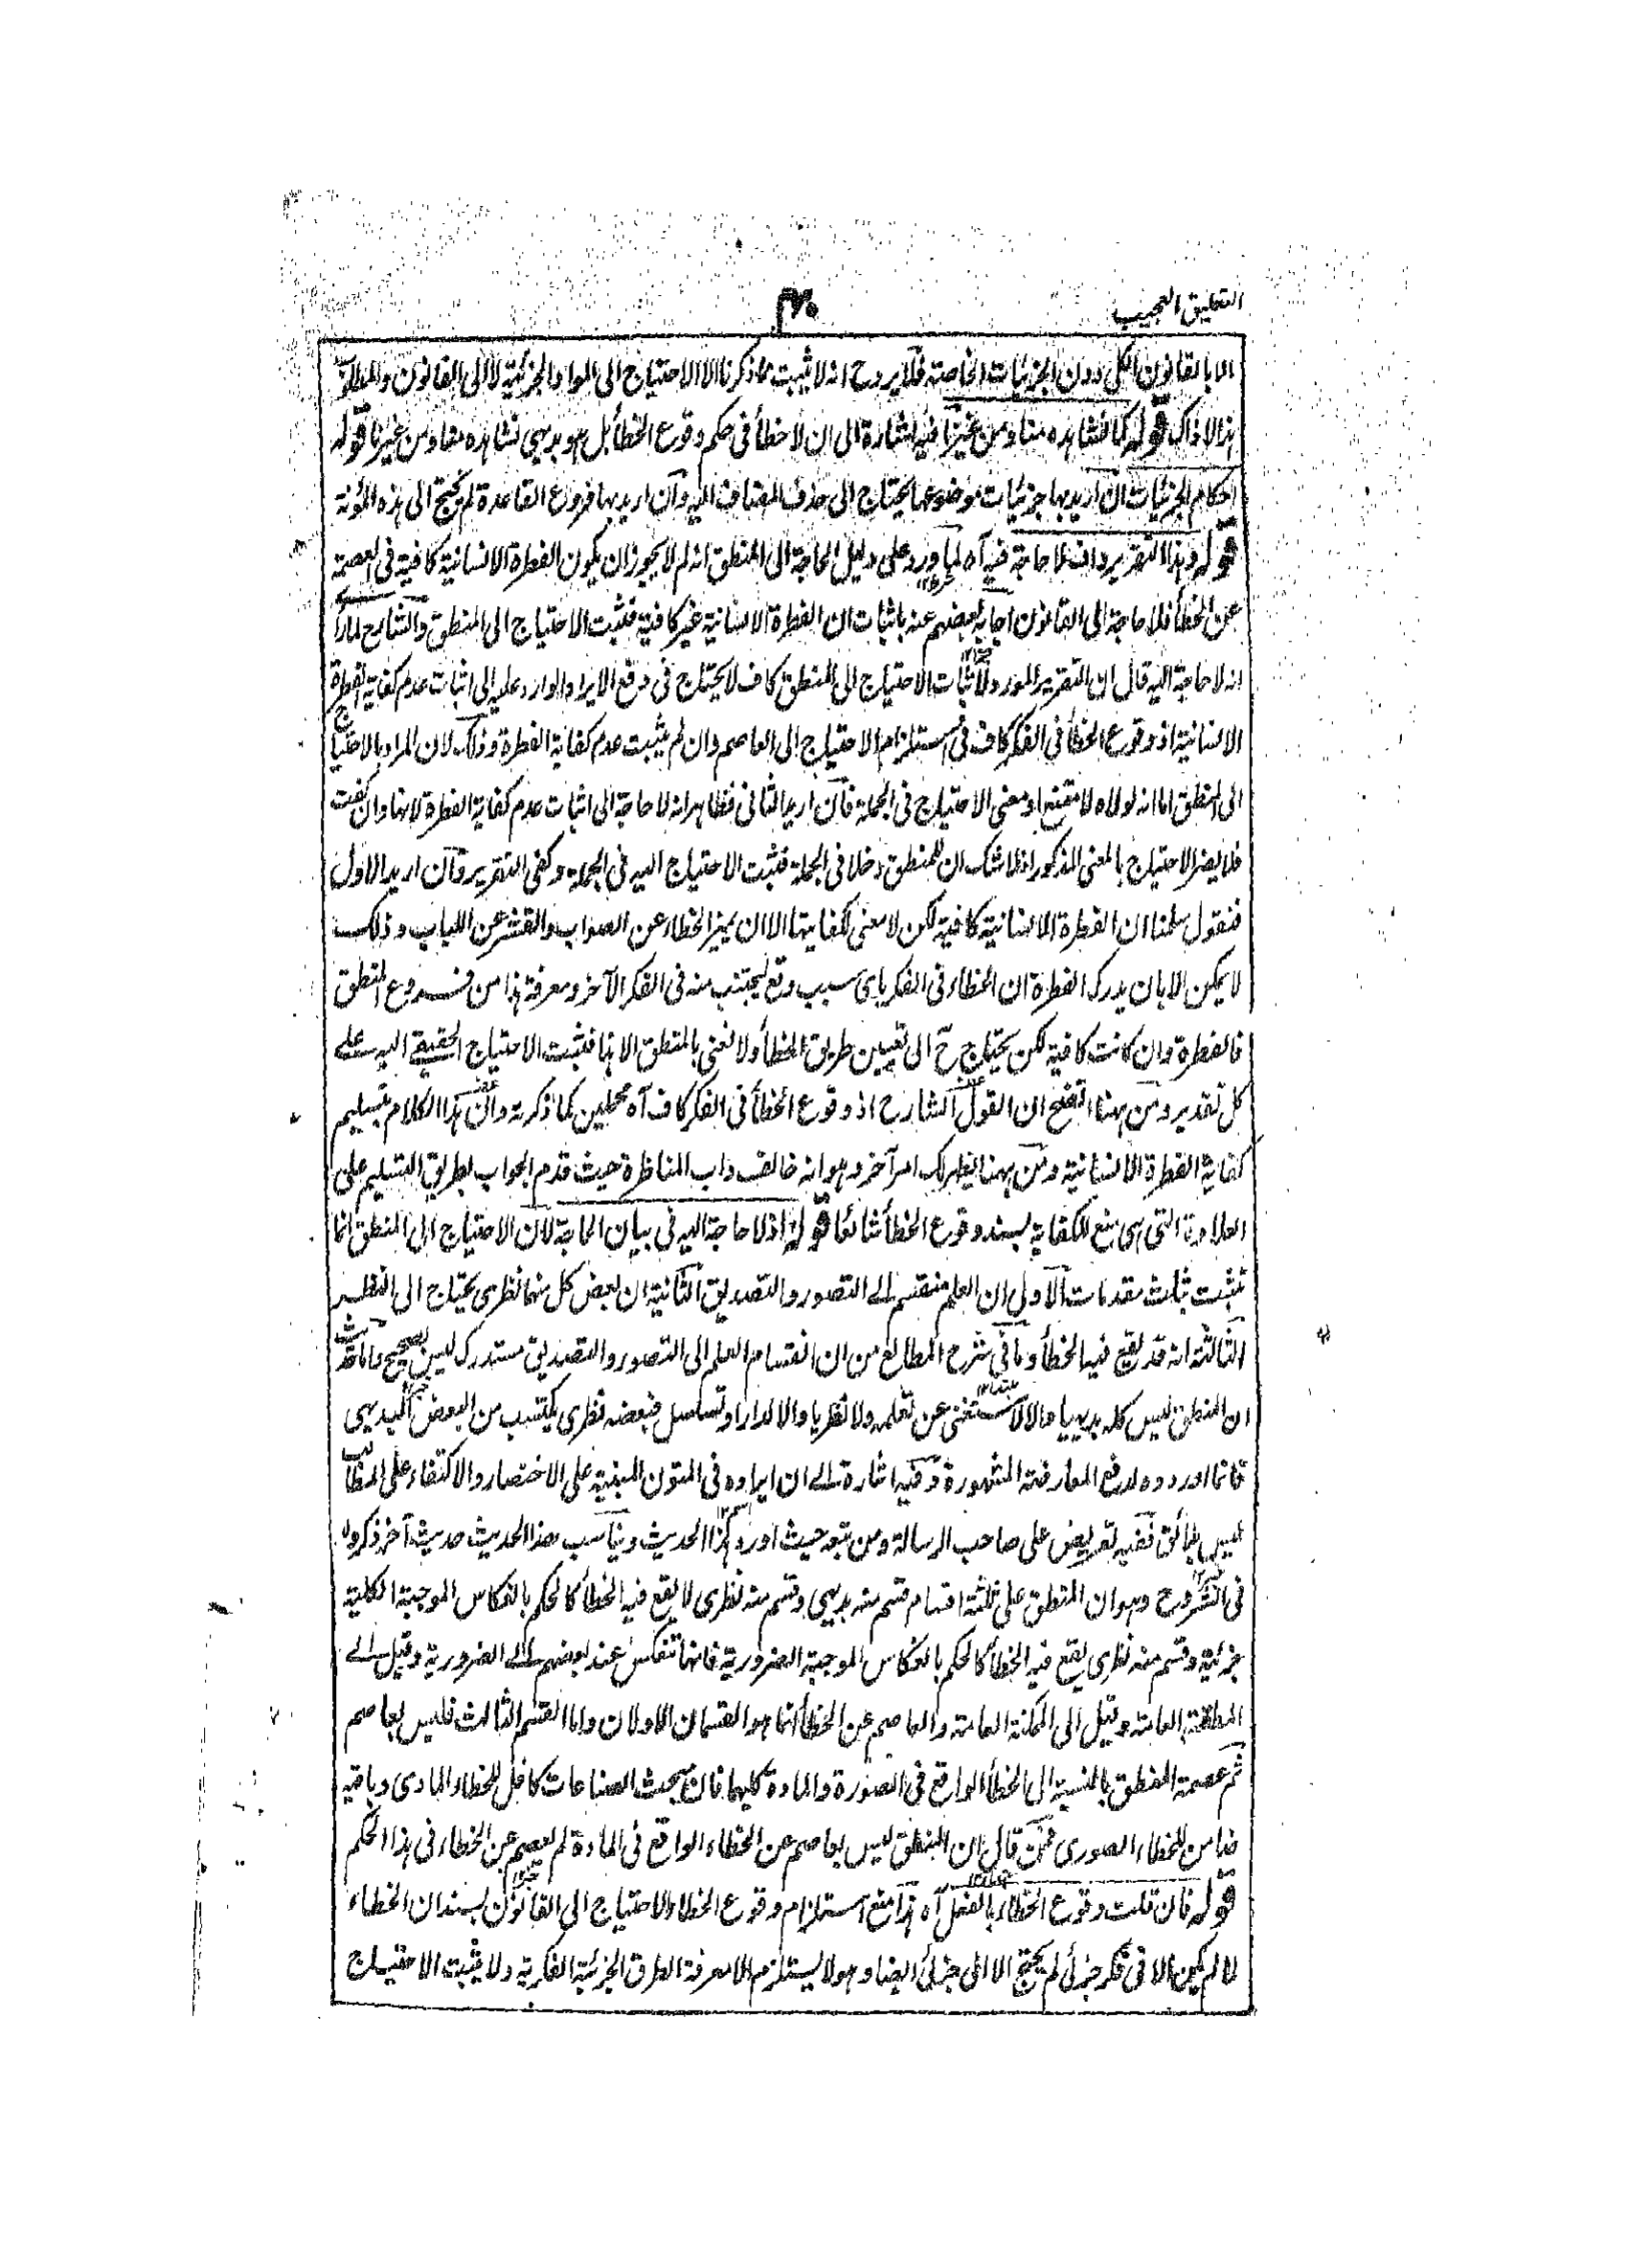 التعليق العجيب
٣٠
الا بالقانون الكلى دون الجزئيات الخاصة فلا يرد ح انه لا يثبت مما ذكرنا الا الاحتياج الى المواد الجزئية لا الى القانون والمدلول
هذا لا ذاك قوله كما نشاهده منا ومن غيرنا فيه اشارة الى ان لا خطأ فى حكم وقوع الخطأ بل هو بديهى نشاهده منا ومن غيرنا قوله
احكام الجزئيات ان اريد بها جزئيات موضوعها يحتاج الى حذف المضاف اليه وان اريد بها فروع القاعدة لم يحتج الى هذه المؤنة
قوله وهذا التقرير واف لا حاجة فيه آه لما ورد على دليل الحاجة الى المنطق انه لم لا يجوز ان يكون الفطرة الانسانية كافية فى العصمة
عن الخطأ فلا حاجة الى القانون اجاب بعضهم عنه باثبات ان الفطرة الانسانية غير كافية فثبت الاحتياج الى المنطق والشارح لما رأى
انه لا حاجة اليه قال ان التقرير المورد لاثبات الاحتياج الى المنطق كاف لا يحتاج فى دفع الايراد الوارد عليه الى اثبات عدم كفاية الفطرة
الانسانية اذ وقوع الخطأ فى الفكر كاف فى استلزام الاحتياج الى العاصم وان لم يثبت عدم كفاية الفطرة وذلك لان المراد بالاحتياج
الى المنطق اما انه لولاه لامتنع او معنى الاحتياج فى الجملة فان اريد الثانى فظاهر انه لا حاجة الى اثبات عدم كفاية الفطرة لانها وان كفت
فلا يضر الاحتياج بالمعنى المذكور اذ لا شك ان للمنطق دخلا فى الجملة فثبت الاحتياج اليه فى الجملة وكفى التقرير وان اريد الاول
فنقول سلمنا ان الفطرة الانسانية كافية لكن لا معنى لكفايتها الا ان يميز الخطاء عن الصواب والقشر عن اللباب وذلك
لا يمكن الا بان يدرك الفطرة ان الخطاء فى الفكر باى سبب وقع ليجتنب منه فى الفكر الآخر ومعرفة هذا من فروع المنطق
فالفطرة وان كانت كافية لكن يحتاج ح الى تعيين طريق الخطأ ولا نعنى بالمنطق الا هذا فثبت الاحتياج الحقيقے اليه علے
كل تقدير ومن ههنا اتضح ان القول الشارح اذ وقوع الخطأ فى الفكر كاف آه محملين كما ذكرته وان هذا الكلام بتسليم
كفاية الفطرة الانسانية ومن ههنا يظهر لك امر آخر وهو انه خالف داب المناظرة حيث قدم الجواب بطريق التسليم على
العلاوة التى هى منع للكفاية بسند وقوع الخطأ شائعا قوله اذ لا حاجة اليه فى بيان الحاجة لان الاحتياج الى المنطق انما
تثبت بثلث مقدمات الاولى ان العلم منقسم الے التصور والتصديق الثانية ان بعض كل منهما نظرى يحتاج الى النظر
الثالثة انه قد يقع فيه الخطأ وما فى شرح المطالع من ان انقسام العلم الى التصور والتصديق مستدرك ليس بصحيح واما حديث
ان المنطق ليس كله بديهيا والا لاستغنى عن تعلمه ولا نظريا والا لدار او تسلسل فبعضه نظرى يكتسب من البعض البديهى
فانما اوردوه لدفع المعارضة المشهورة وفيه اشارة الے ان ايراده فى المتون المبنية على الاختصار والاكتفاء على المطالب
ليس بلائق ففيه تعريض على صاحب الرسالة ومن تبعه حيث اورد هذا الحديث ويناسب هذا الحديث حديث آخر ذكروه
فى الشروح وهو ان المنطق على ثلثة اقسام قسم منه بديهى وقسم منه نظرى لا يقع فيه الخطأ كالحكم بانعكاس الموجبة الكلية
جزئية وقسم منه نظرى يقع فيه الخطأ كالحكم بانعكاس الموجبة الضرورية فانها تنعكس عند بعضهم الے الضرورية وقيل الے
المطلقة العامة وقيل الى الممكنة العامة والعاصم عن الخطأ انما هو القسمان الاولان واما القسم الثالث فليس بعاصم
ثم عصمة المنطق بالنسبة الى الخطأ الواقع فى الصورة والمادة كليهما فان مبحث الصناعات كافل للخطاء المادى وباقيه
ضامن للخطاء الصورى فمن قال ان المنطق ليس بعاصم عن الخطاء الواقع فى المادة لم يعصم عن الخطاء فى هذا الحكم
قوله فان قلت وقوع الخطاء بالفعل آه هذا منع استلزام وقوع الخطاء للاحتياج الى القانون بسند ان الخطاء
لا لم يكن الا فى فكر جزئى لم يحتج الا الى جزئى ايضا وهو لا يستلزم الا معرفة الطرق الجزئية الفكرية ولا يثبت الاحتياج